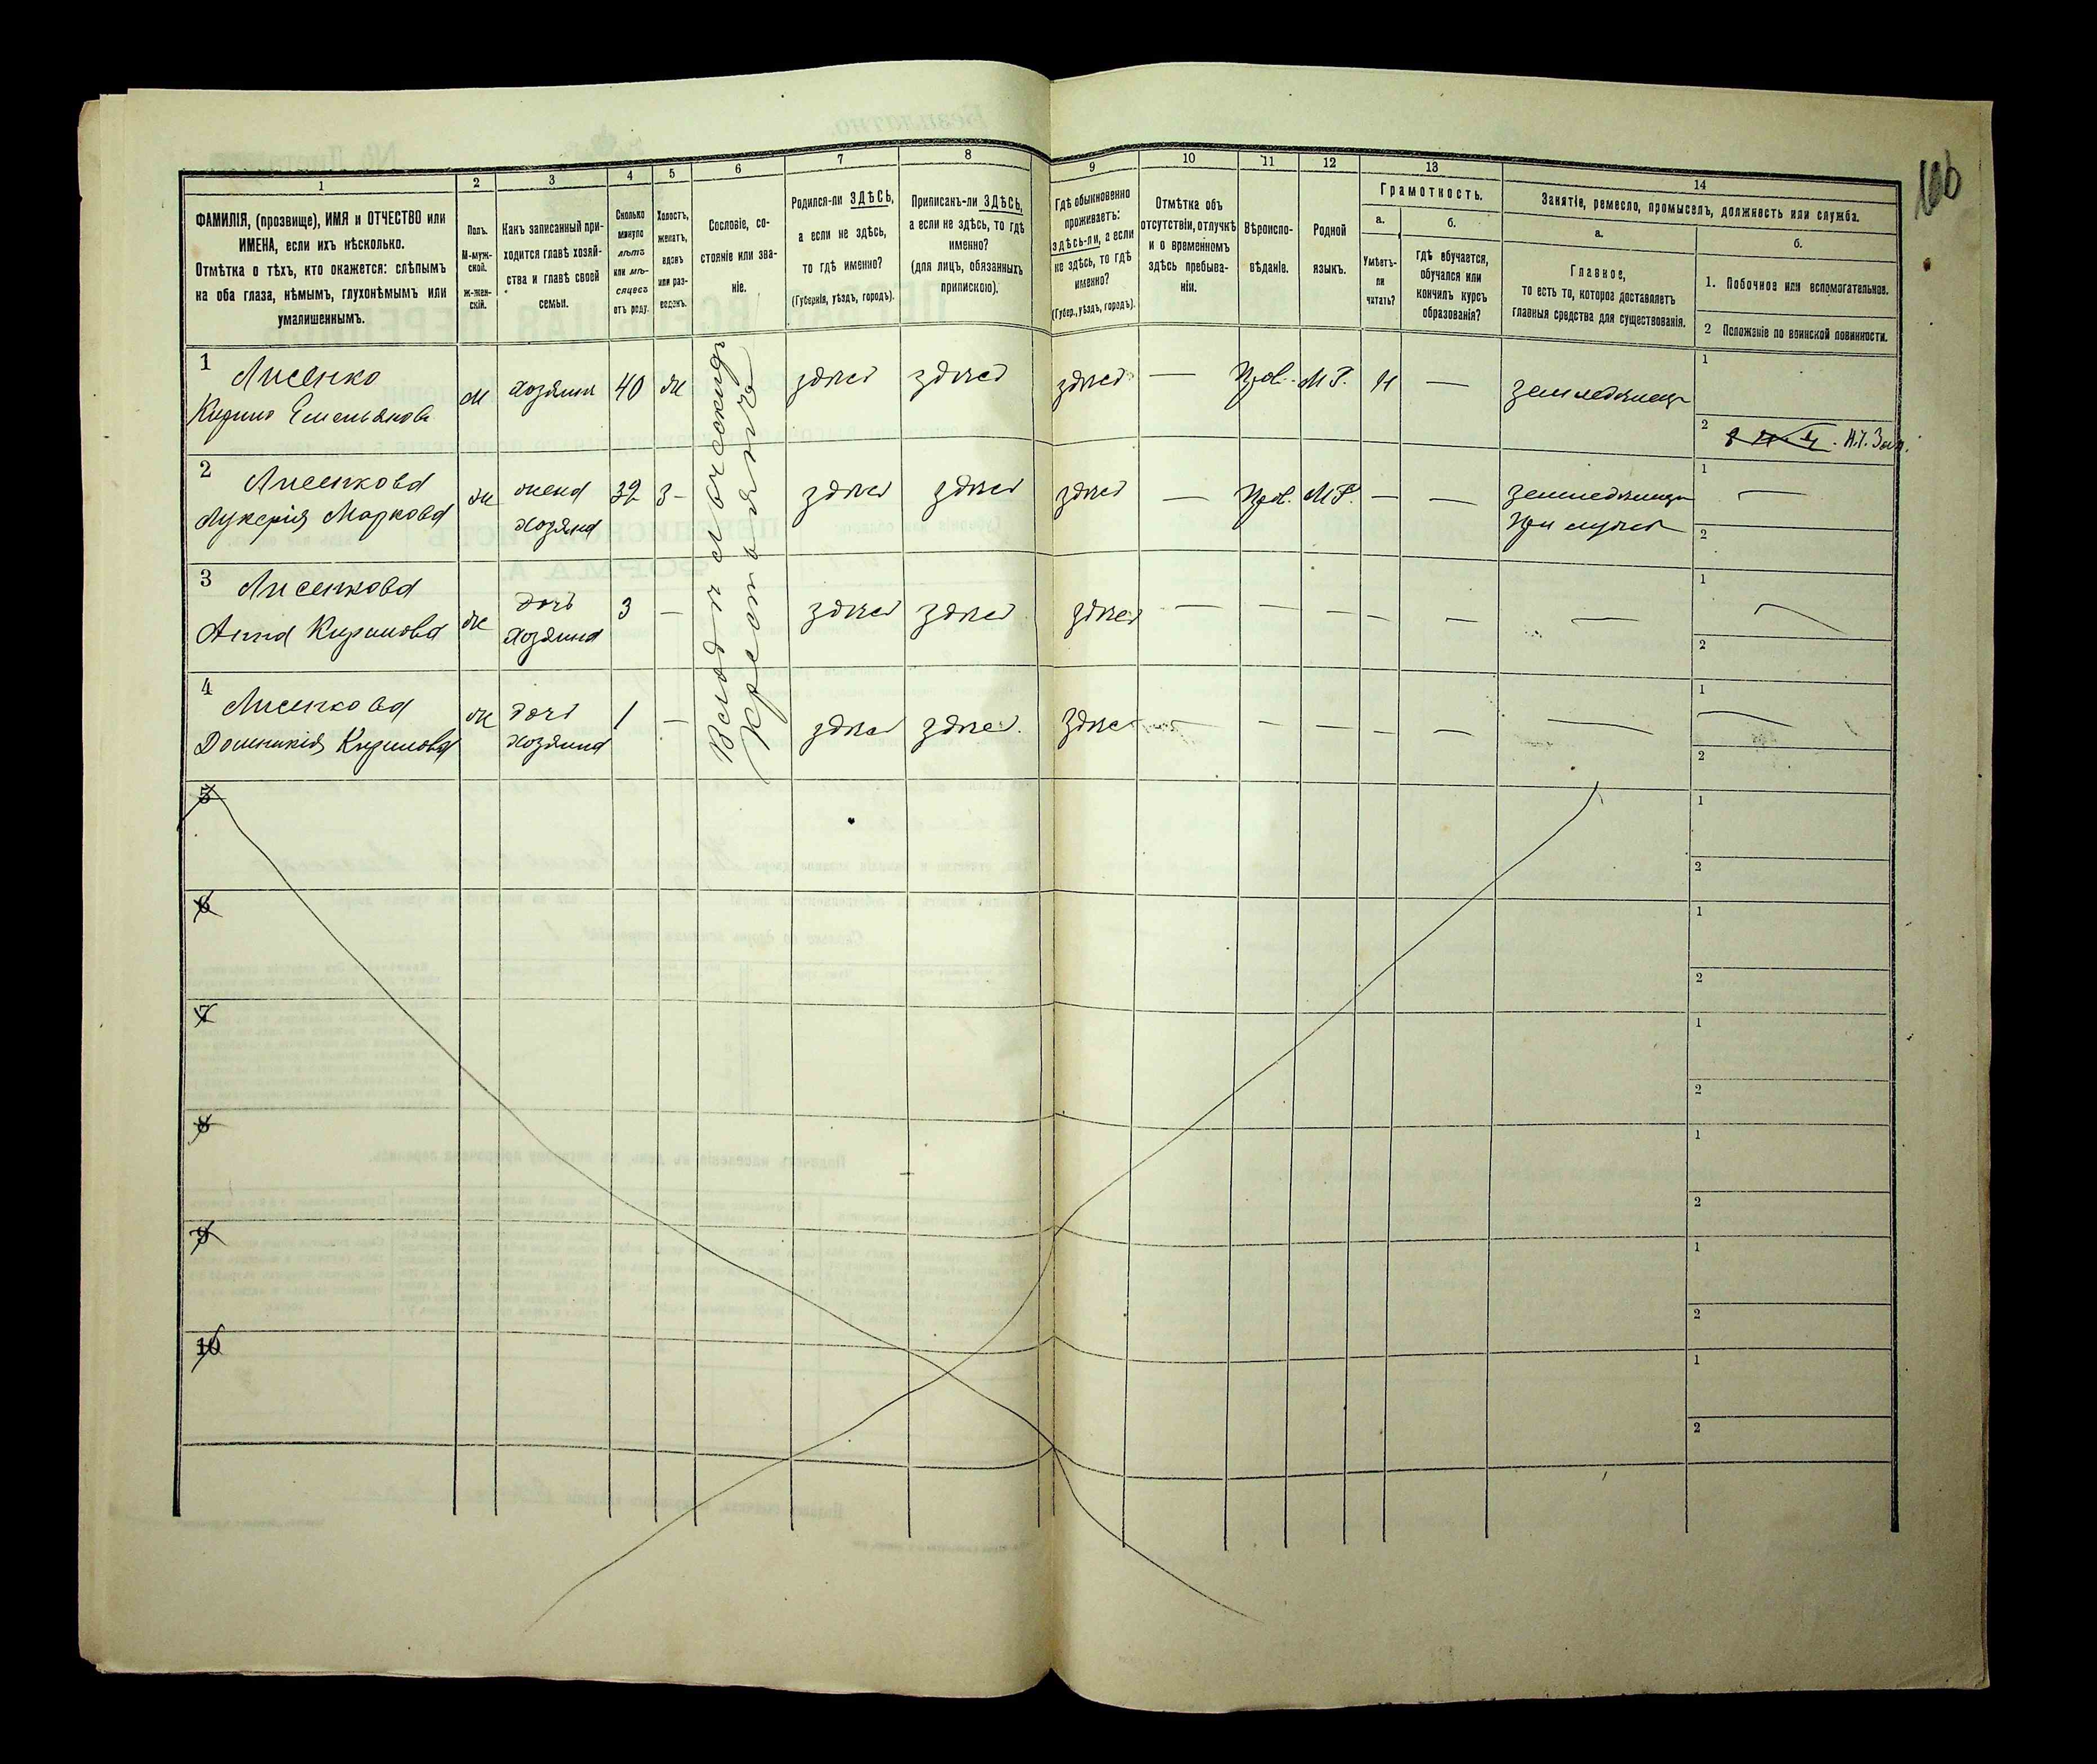 106
1
2
3
4
5
6
7
8
9
10
11
12
13
14
ФАМИЛІЯ, (прозвище), ИМЯ и ОТЧЕСТВО или
ИМЕНА, если ихъ нѣсколько.
Отмѣтка о тѣхъ, кто окажется: слѣпымъ
на оба глаза, нѣмымъ, глухонѣмымъ или
умалишеннымъ.
Полъ.
М-муж-
ской.
Ж-жен-
скій.
Какъ записанный при-
ходится главѣ хозяй-
ства и главѣ своей
семьи.
Сколько
минуло
лѣтъ
или мѣ-
сяцевъ
отъ роду.
Холостъ,
женатъ,
вдовъ
или раз-
веденъ.
Сословіе, со-
стояніе или зва-
ніе.
Родился-ли ЗДѢСЬ,
а если не здѣсь,
то гдѣ именно?
(Губернія, уѣздъ, городъ).
Приписанъ-ли ЗДѢСЬ,
а если не здѣсь, то гдѣ
именно?
(для лицъ, обязанныхъ
припискою).
Гдѣ обыкновенно
проживаетъ:
здѣсь-ли, а если
не здѣсь, то гдѣ
именно?
(Губер., уѣздъ, городъ).
Отмѣтка объ
отсутствіи, отлучкѣ
и о временномъ
здѣсь пребыва-
ніи.
Вѣроиспо-
вѣданіе.
Родной
языкъ.
Грамотность.
а.
Умѣетъ-
ли
читать?
б.
гдѣ обучается,
обучался или
кончилъ курсъ
образованія?
Занятіе, ремесло, промыселъ, должность или служба.
а.
Главное,
то есть то, которое доставляетъ
главныя средства для существованія.
б.
1. Побочное или вспомогательное.
2 Положеніе по воинской повинности.
1
Лисенко
Кирило Емельяновъ
м хозяинъ 40 ж
здѣсь здѣсь здѣсь — Прав. М.Р. Н — земледѣлецъ
1
2
2
Лисенкова
Лукерія Маркова
ж жена
хозяина
32 З-
здѣсь здѣсь здѣсь — Прав. М.Р. — —
земледѣлица
при мужѣ
1 —
2
3
Лисенкова
Анна Кирилова
ж дочь
хозяина
3 —
здѣсь здѣсь здѣсь — — — — — —
1 —
2
4
Лисенкова
Домникія Кирилова
ж дочь
хозяина
1 —
здѣсь здѣсь здѣсь — — — — — —
1 —
2
крестьянинъ
5
1
2
6
1
2
7
1
2
8
1
2
9
1
2
10
1
2